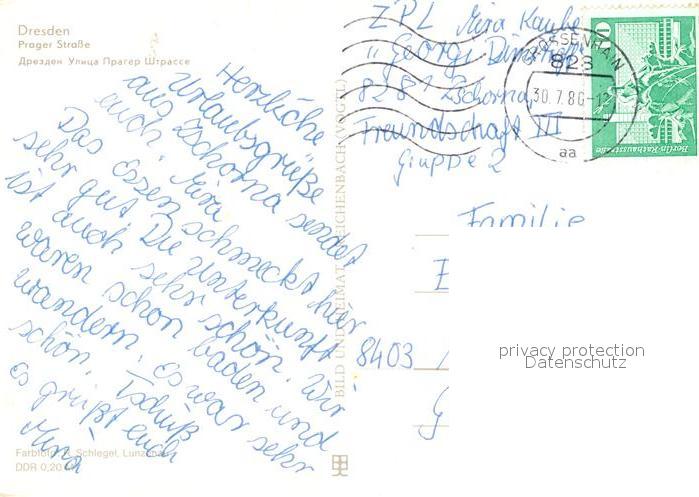 Dresden
Prager Straße
Дрезден Улица Прагер Штрассе
Herzliche
Urlaubsgrüße
aus Zschorna sendet
euch Mira
Das Essen schmeckt hier
sehr gut. Die Unterkunft
ist auch sehr schön. Wir
waren schon baden und
wandern. es war sehr
schön. Tschüß
es grüßt euch
Mira
Farbfoto: R. Schlegel, Lunzenau
DDR 0,20 M
BILD UND HEIMAT REICHENBACH (VOGTL)
ZPL Mira
"Georgi
8281 Zschorna
Freundschaft III
Gruppe 2
GROSSENHAIN
828
30.7.86-12
aa
10
Berlin-Rathausstraße
Familie
8403
G
privacy protection
Datenschutz